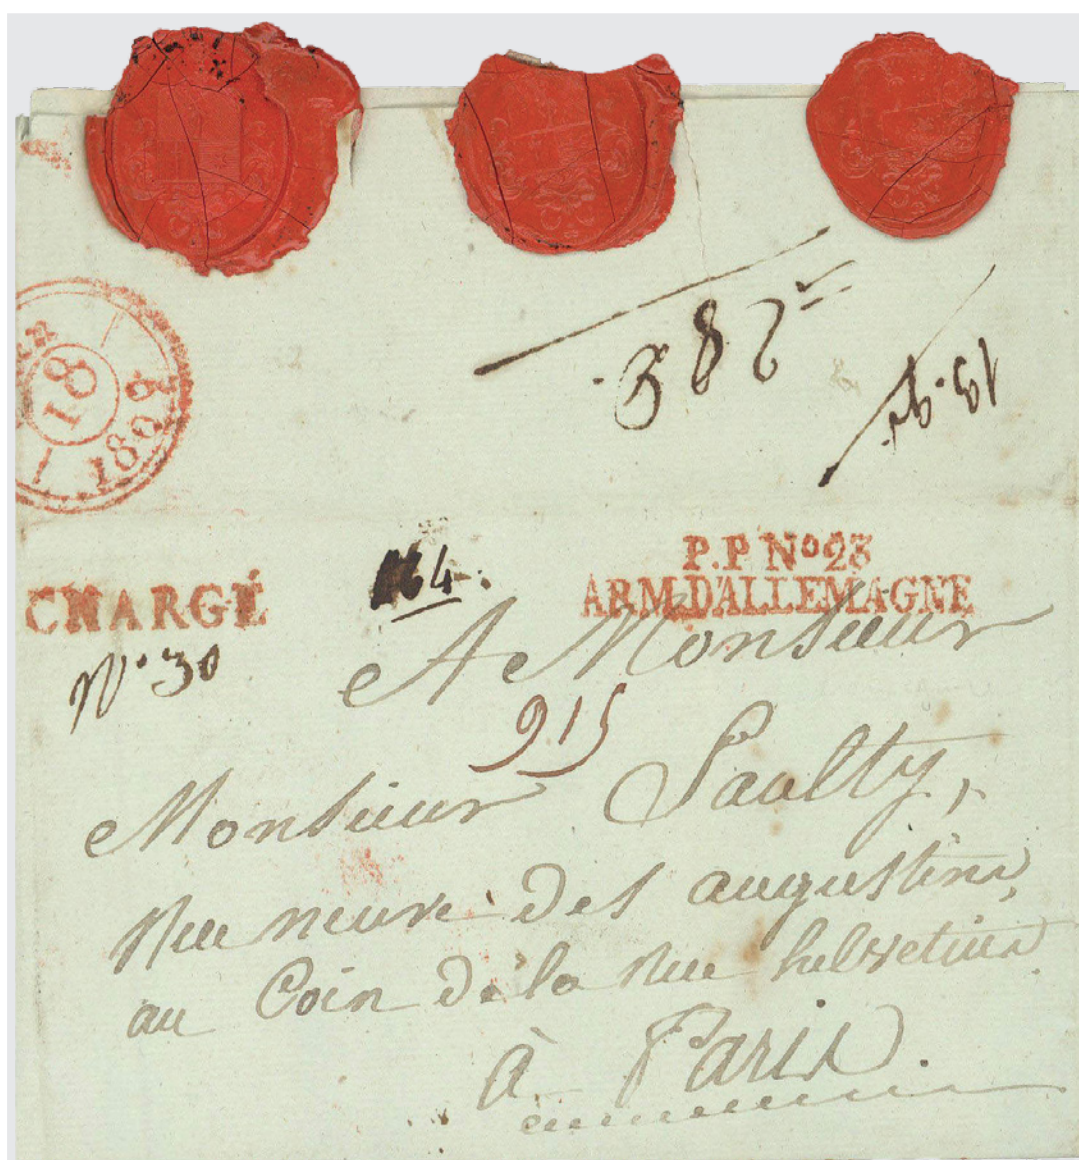 18
1808
382
CHARGÉ
P.P. Nº 23
ARM. D'ALLEMAGNE
Nº 30
A Monsieur
915
Monsieur Saulty,
Rue neuve des augustins,
au Coin de la Rue helvetius
à Paris.